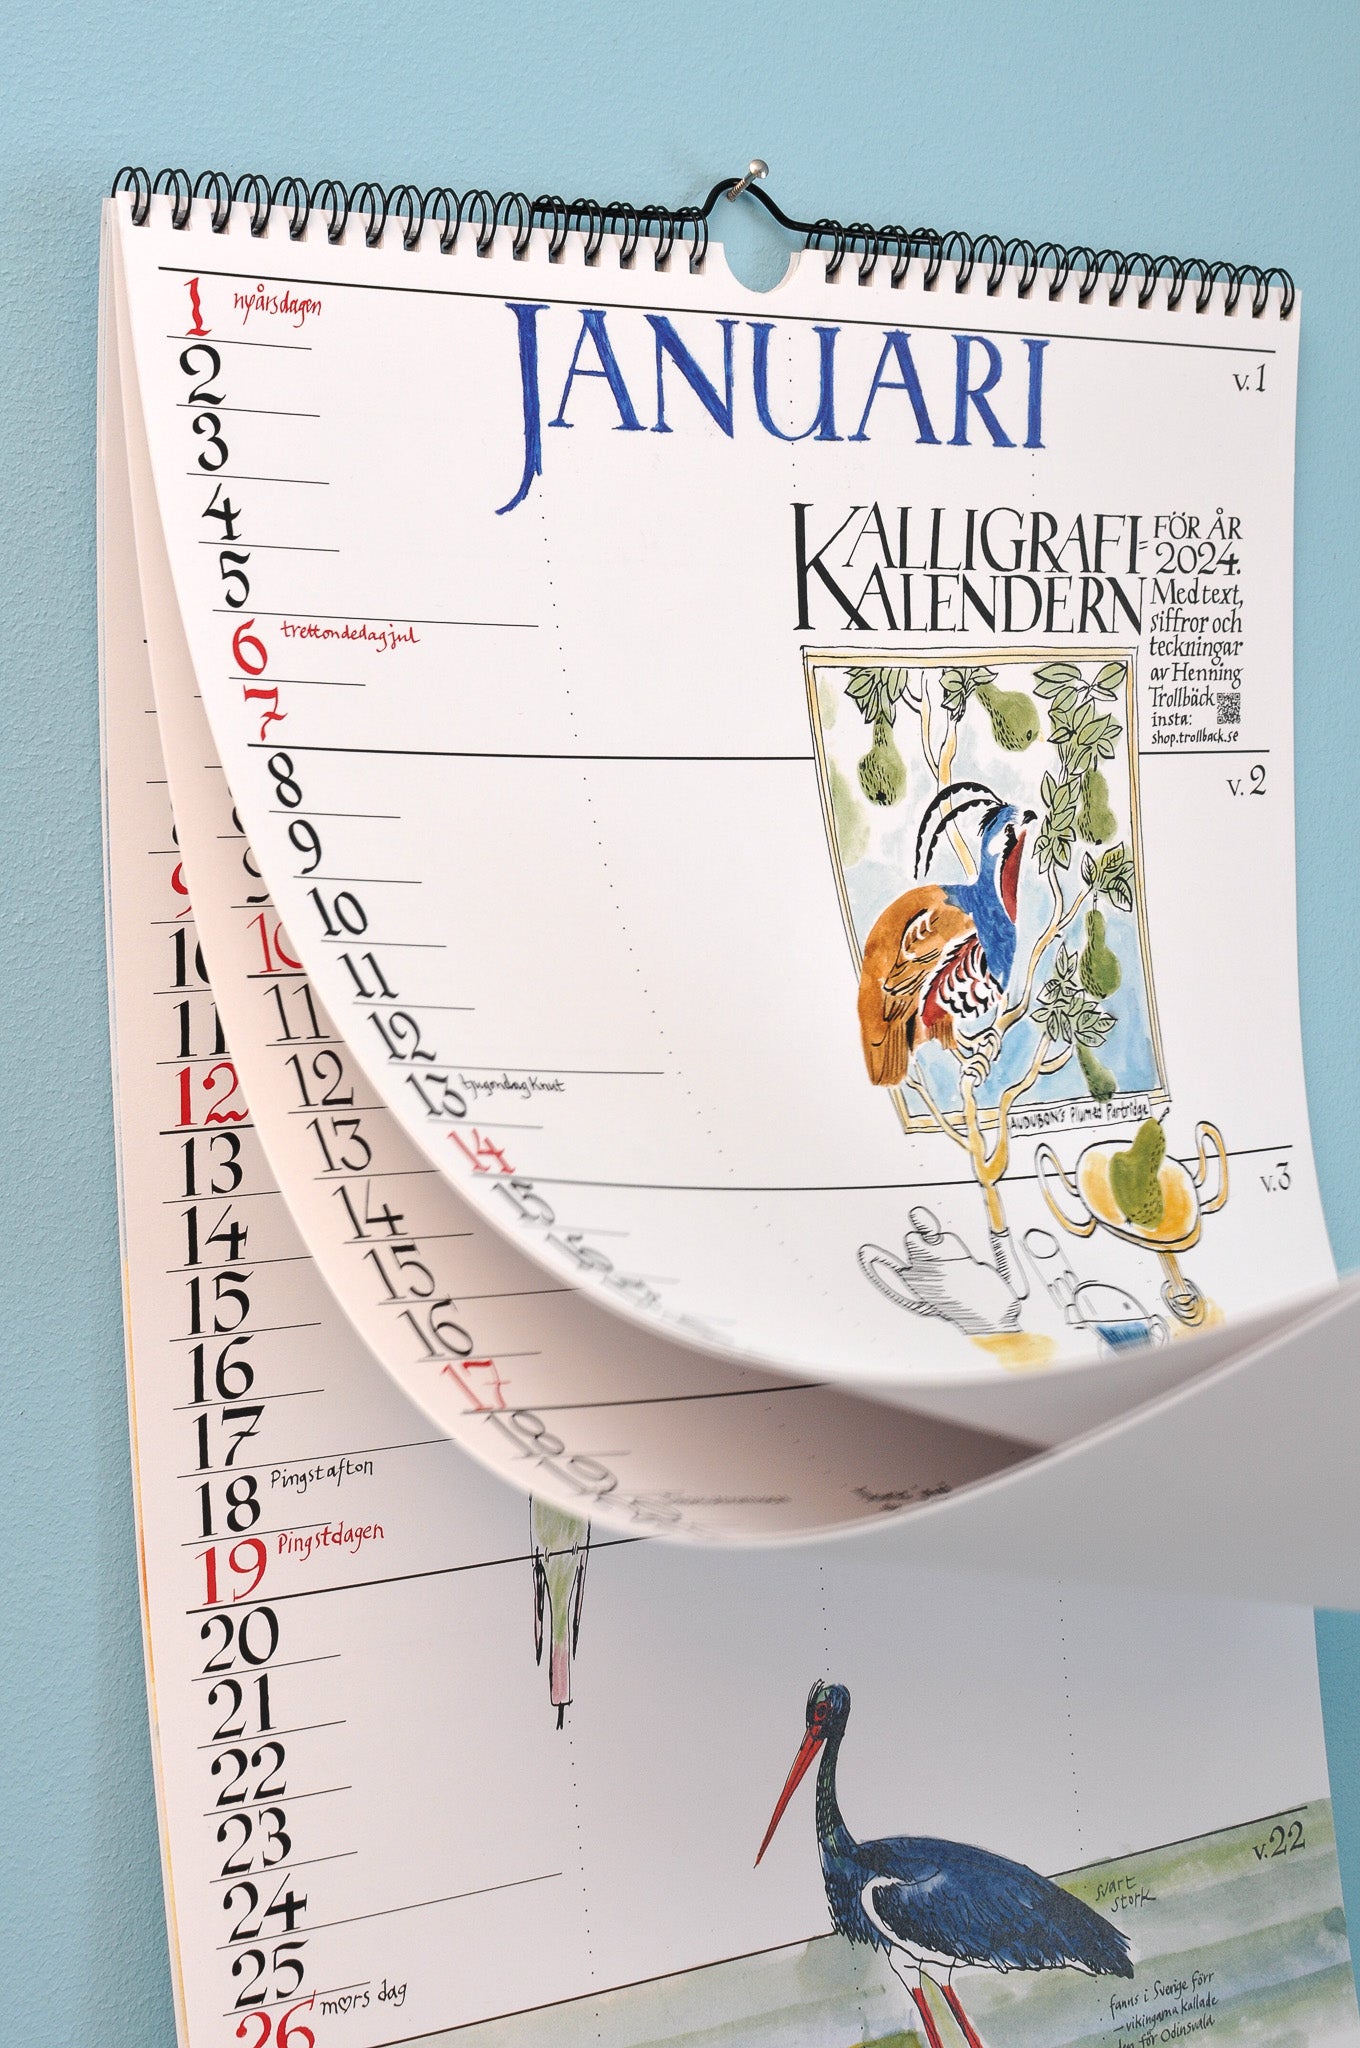 1 nyårsdagen
JANUARI
v.1
2
3
4
5
6 trettondedag jul
7
KALLIGRAFI=
KALENDERN
FÖR ÅR
2024.
Med text,
siffror och
teckningar
av Henning
Trollbäck
insta:
shop.trollback.se
8
v.2
9
10
11
12
13 tjugondag Knut
14
15
v.3
AUDUBON'S Plumed Partridge
10
11
12
13
14
15
16
17
9
10
11
12
13
14
15
16
17
18 Pingstafton
19 Pingstdagen
20
21
22
23
24
25
26 mors dag
v.22
svart
stork
fanns i Sverige förr
– vikingarna kallade
den för Odinsvala